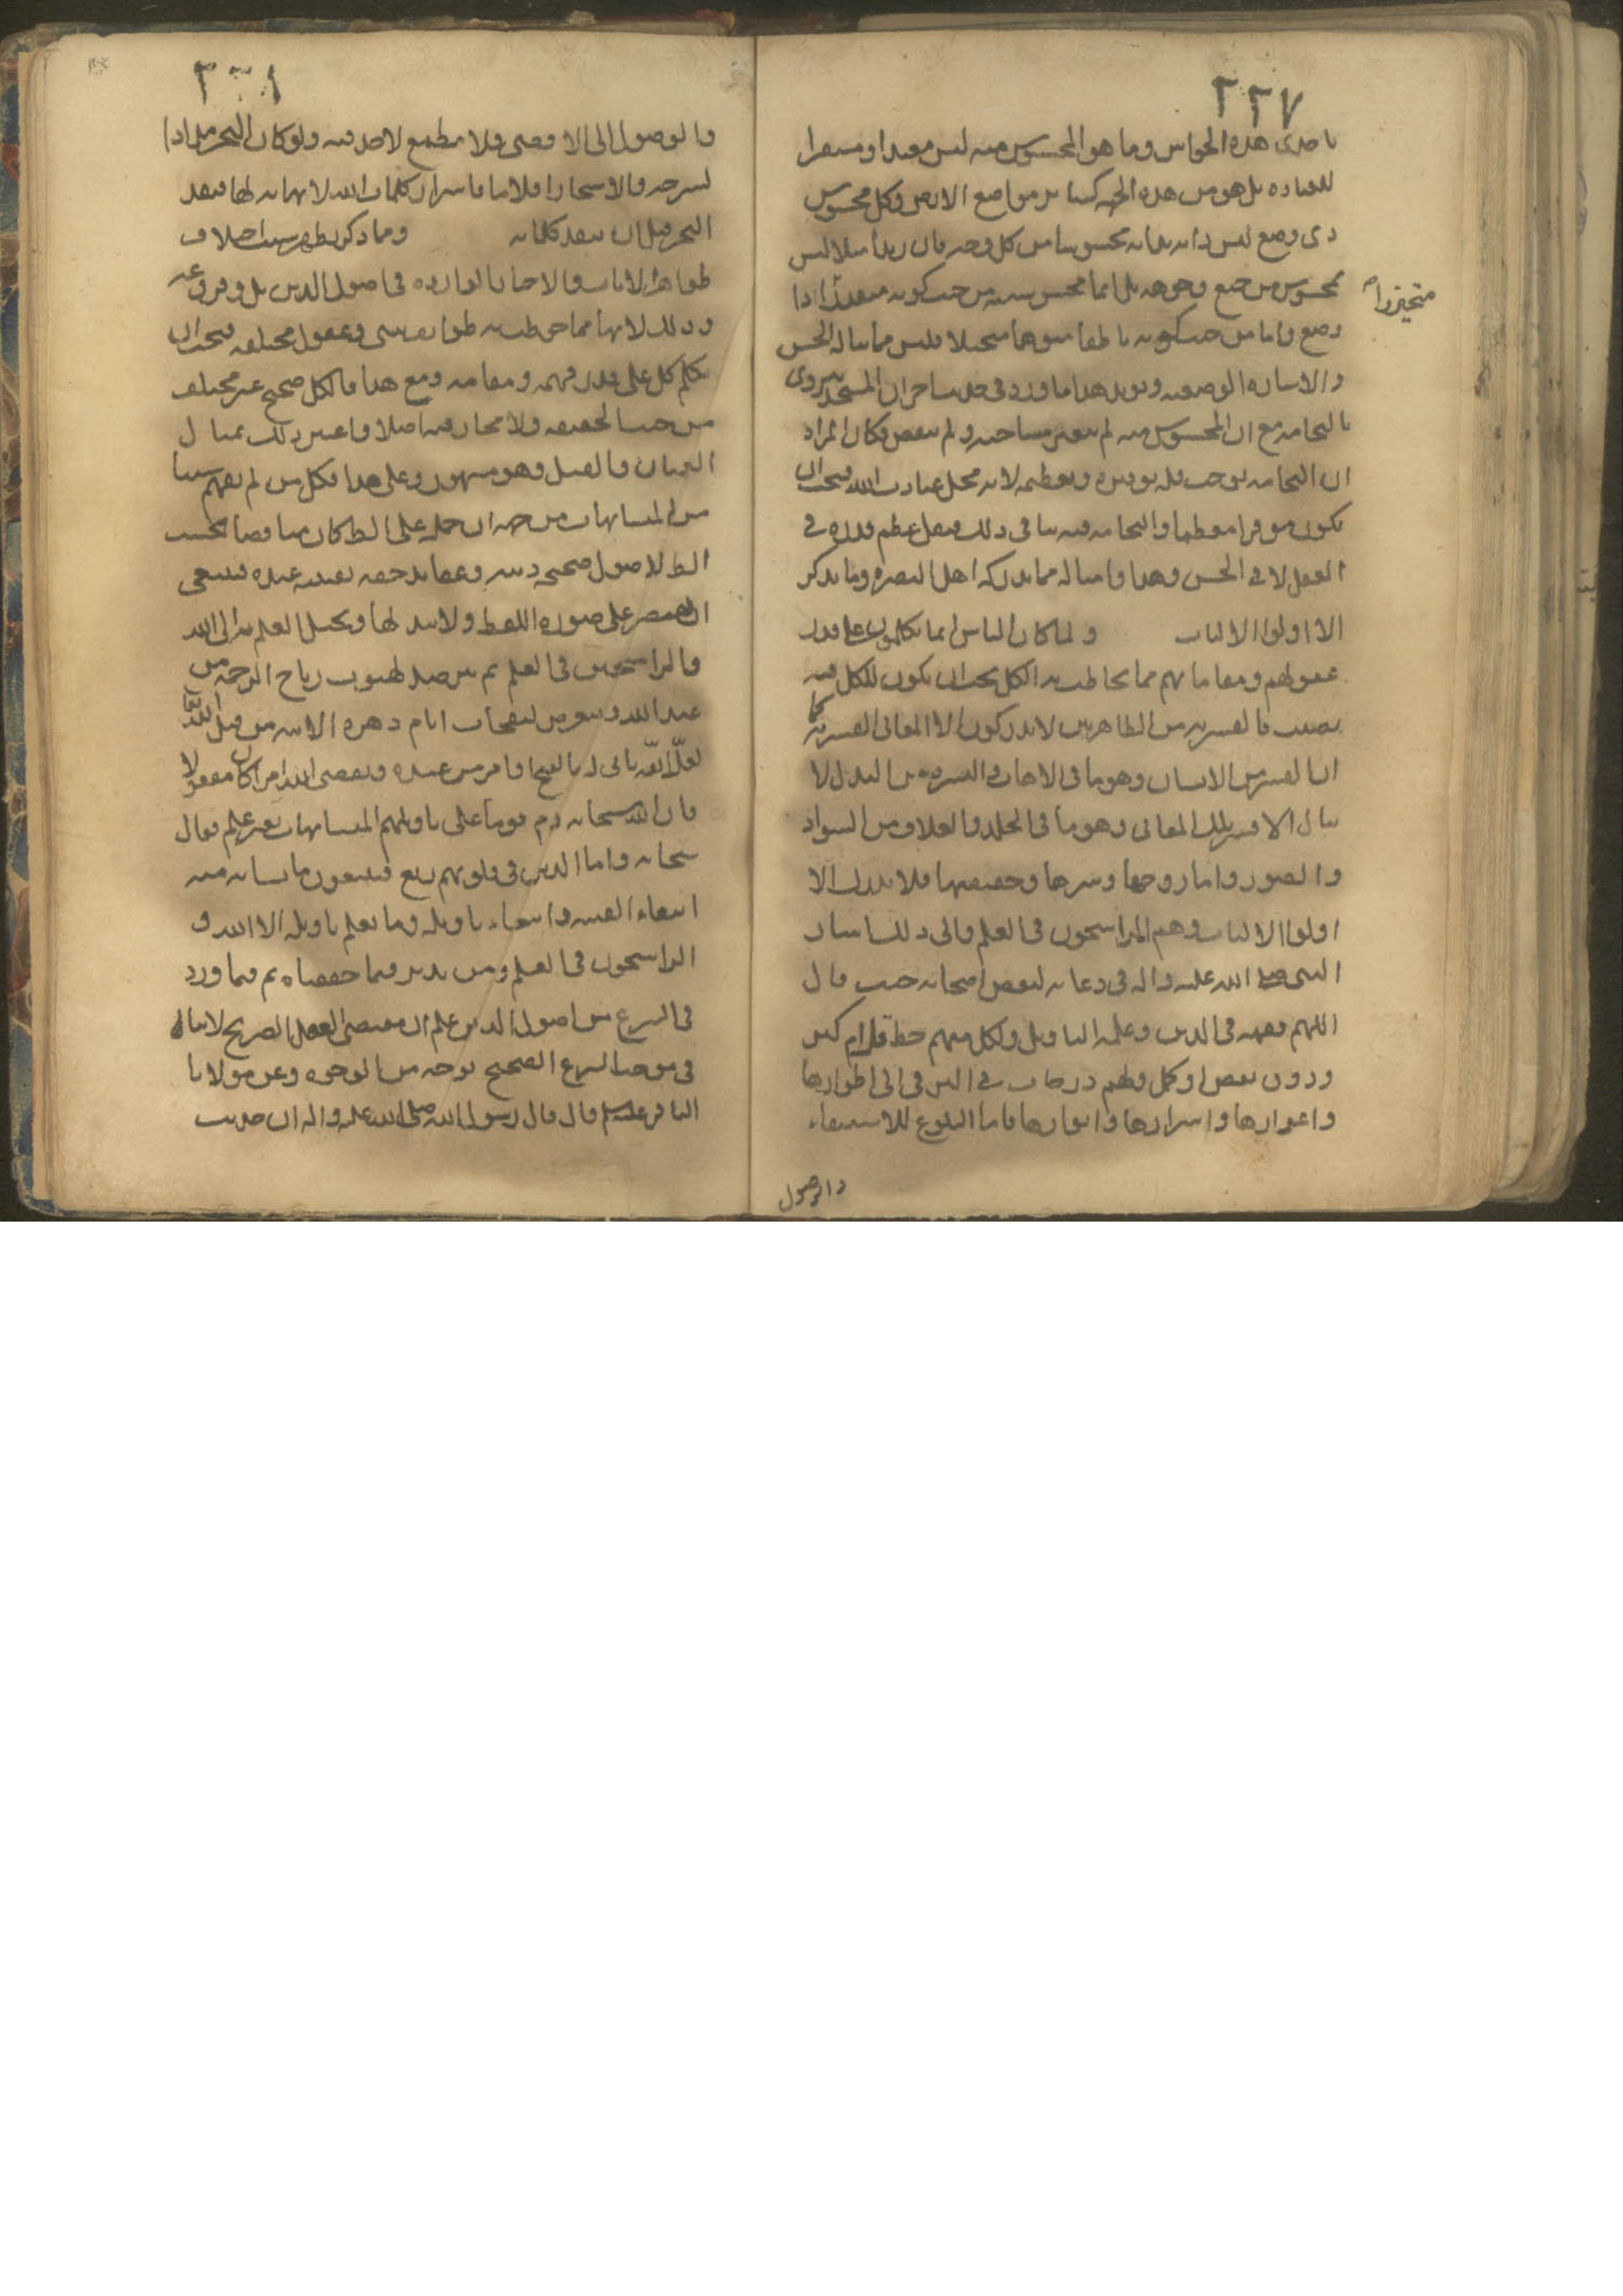 ٢٢٧
باحدى هذه الحواس وما هو المحسوس منه ليس معبدا ومشعرا
للعباده بل هو من هذه الجهه كسائر مواضع الارض وكل محسوس
ذى وضع ليس ذاته بذاته محسوسا من كل وجه فان زيدا مثلا ليس
بمحسوس من جميع وجوهه بل انما محس منه من حيث كونه متقدرا ذا
متحيزا
وضع واما من حيث كونه ناطقا متوهما متخيلا فليس مما يناله الحس
والاشاره الوضعيه ويويد هذا ما ورد فى حديث اخر ان المسجد ينزوى
بالنخامه مع ان المحسوس منه لم يتغير مساحته ولم ينقص وكان المراد
ان النخامه يوجب قله توقيره وتعظيمه لانه محل عبادت الله فيجب ان
يكون موقرا معظما والنخامه فيه ينافى ذلك فيقل عظم قدره فى
العقل لا فى الحس وهذا وامثاله مما يدركه اهل البصيره وما يذكر
الا اولوا الالباب ولما كان الناس انما يكلمون على قدر
عقولهم ومقاماتهم مما يخاطب به الكل يجب ان يكون للكل فيه
نصيب فالقشريه من الظاهريين لا يدركون الا المعانى القشريه كما
ان القشر من الانسان وهو ما فى الاهاب والبشره من البدن لا
ينال الا قشر تلك المعانى وهو ما فى الجلد والغلاف من السواد
والصور واما روحها وسرها وحقيقتها فلا يدرك الا
اولوا الالباب وهم الراسخون فى العلم والى ذلك اشار
النبى صلى الله عليه واله فى دعائه لبعض اصحابه حيث قال
اللهم فقهه فى الدين وعلمه التاويل ولكل منهم حظ قل ام كثر
وذوق نقص او كمل ولهم درجات فى الترقى الى اطوارها
واغوارها واسرارها وانوارها فاما البلوغ للاستيفاء
والوصول
٢٢٨
والوصول الى الاقصى فلا مطمع لاحد فيه ولو كان البحر مدادا
لشرحه والاشجار اقلاما فاسرار كلمات الله لا نهايه لها فنفد
البحر قبل ان تنفد كلماته وما ذكر يظهر سبب اختلاف
ظواهر الايات والاخبار الوارده فى اصول الدين بل وفروعه
وذلك لانها مما خوطب به طوائف شتى وعقول مختلفه فيجب ان
يكلم كل على قدر فهمه ومقامه ومع هذا فالكل صحيح غير مختلف
من حيث الحقيقه ولا مجاز فيه اصلا واعتبر ذلك بمثال
العميان والفيل وهو مشهور وعلى هذا فكل من لم يفهم شيئا
من المتشابهات من جهه ان حمله على الظ كان مناقضا بحسب
الظ لاصول صحيحه دينيه وعقايد حقه يقينيه عنده فينبغى
ان يقتصر على صوره اللفظ ولا يبدلها ويحيل العلم به الى الله
والراسخين فى العلم ثم يترصد لهبوب رياح الرحمه من
عند الله ويتعرض لنفحات ايام دهره الاتيه من قبل الله
لعل الله ياتى له بالفتح او امر من عنده ويقضى الله امرا كان مفعولا
فان الله سبحانه ذم قوما على تاويلهم المتشابهات بغير علم فقال
سبحانه واما الذين فى قلوبهم زيغ فيتبعون ما تشابه منه
ابتغاء الفتنه وابتغاء تاويله وما يعلم تاويله الا الله و
الراسخون فى العلم ومن تدبر فيما حققناه ثم فيما ورد
فى الشرع من اصول الدين علم ان مقتضى العقل الصريح لا ينافى
فى موجب الشرع الصحيح بوجه من الوجوه وعن مولانا
الباقر عليه السلم قال قال رسول الله صلى الله عليه واله ان حديث